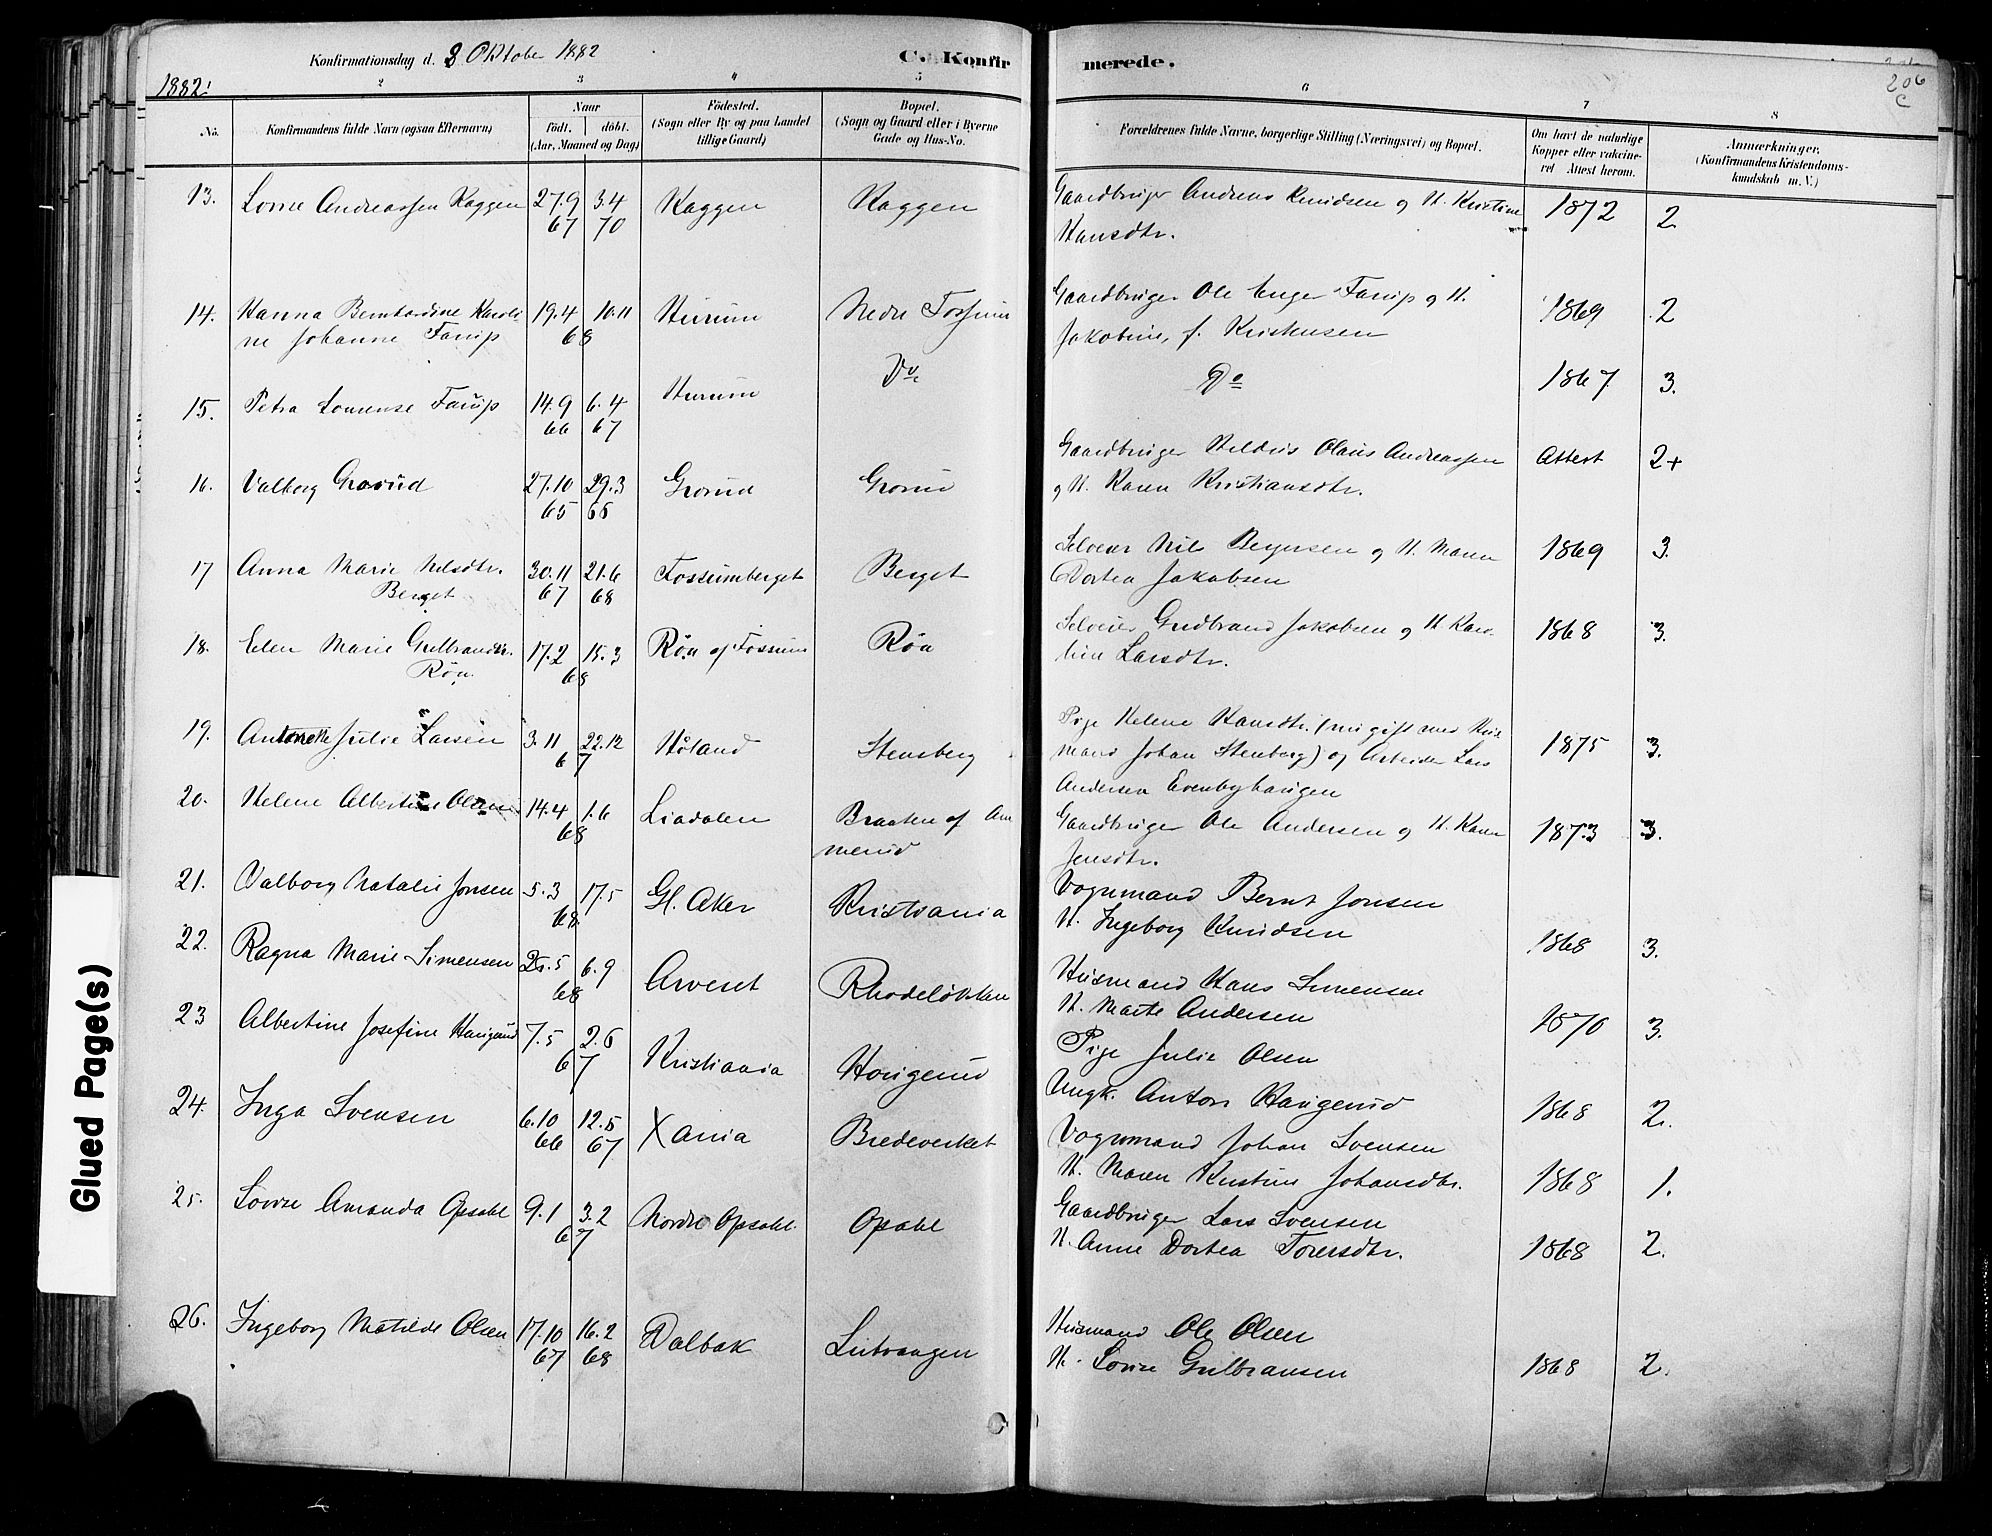 Konfirmationsdag d. 8 Oktober 1882
C. Konfirmerede.
206
C
1882:
2 3 4 5 6 7 8
No. Konfirmandens fulde Navn (ogsaa Efternavn)
Naar
födt. döbt.
(Aar, Maaned og Dag)
Födested.
(Sogn eller By og paa Landet
tillige Gaard)
Bopæl.
(Sogn og Gaard eller i Byerne
Gade og Hus-No.
Forældrenes fulde Navne, borgerlige Stilling (Næringsvei) og Bopæl.
Om havt de naturlige
Kopper eller vakcine-
ret Attest herom.
Anmærkninger.
(Konfirmandens Kristendoms-
kundskab m. V.)
13. Lovise Andreassen Kaggen 27.9 67 3.4 70 Kaggen Kaggen Gaardbruger Andreas Knudsen og H. Kristine
Hansdtr. 1872 2
14. Hanna Berntardine Karoli-
ne Johanne Farup 19.4 10.11 68 Hurum Nedre Fossum Gaardbruger Ole Unger Farup og H.
Jakobine, f. Kristensen 1869 2
15. Petra Lovense Farup 14.9 66 6.4 67 Hurum Do Do 1867 3.
16. Valborg Grorud 27.10 65 29.3 68 Grorud Grorud Gaardbruger Olaus Andreassen
og H. Karen Kristiansdtr. Attest 2+
17 Anna Marie Nilsdtr.
Berget 30.11 67 21.6 68 Fossumberget Berget Selveier Nils Bergersen og H. Maren
Dortea Jakobsen 1869 3.
18. Elen Marie Gulbrandsdtr.
Röa 17.2 15.3 68 Röa af Fossum Röa Selveier Gudbrand Jakobsen og H. Karo-
line Larsdtr. 1868 3.
19. Antonette Julie Larsen 3.11 22.12 67 Höland Stensberg Pige Helene Hansdtr. (nu gift med Hus-
mand Johan Stenberg) og Arbeider Lars
Andersen Evenbyhaugen 1875 3.
20. Helene Albertine Olsen 14.4 1.6 68 Liadalen Braaten af Am
merud Gaardbruger Ole Andersen og H. Karen
Jensdtr. 1873 3.
21. Valborg Natalie Jonsen 5.3 17.5 68 Gl. Aker Kristiania Vognmand Bernt Jonsen
H. Ingeborg Knudsen 1868 3.
22. Ragna Marie Simensen 25.5 6.9 68 Arveset Rhodelökken Husmand Hans Simensen
H. Marte Andersen 1870 3.
23 Albertine Josefine Haugerud 7.5 2.6 67 Kristiania Haugerud Pige Julie Olsen
Ungk. Anton Haugerud 1868 2.
24. Inga Svensen 6.10 66 12.5 67 Xania Bredeverket Vognmand Johan Svensen
H. Maren Kristine Johansdtr. 1868 1.
25. Lovise Amanda Opsahl 9.1 3.2 67 Nordre Opsahl Opsahl Gaardbruger Lars Svensen
H. Anne Dortea Toresdtr. 1868 2.
26. Ingeborg Matilde Olsen 17.10 67 16.2 68 Dalbak Lutvangen Husmand Ole Olsen
H. Lovise Gulbransen 1868 2.
Glued Page(s)